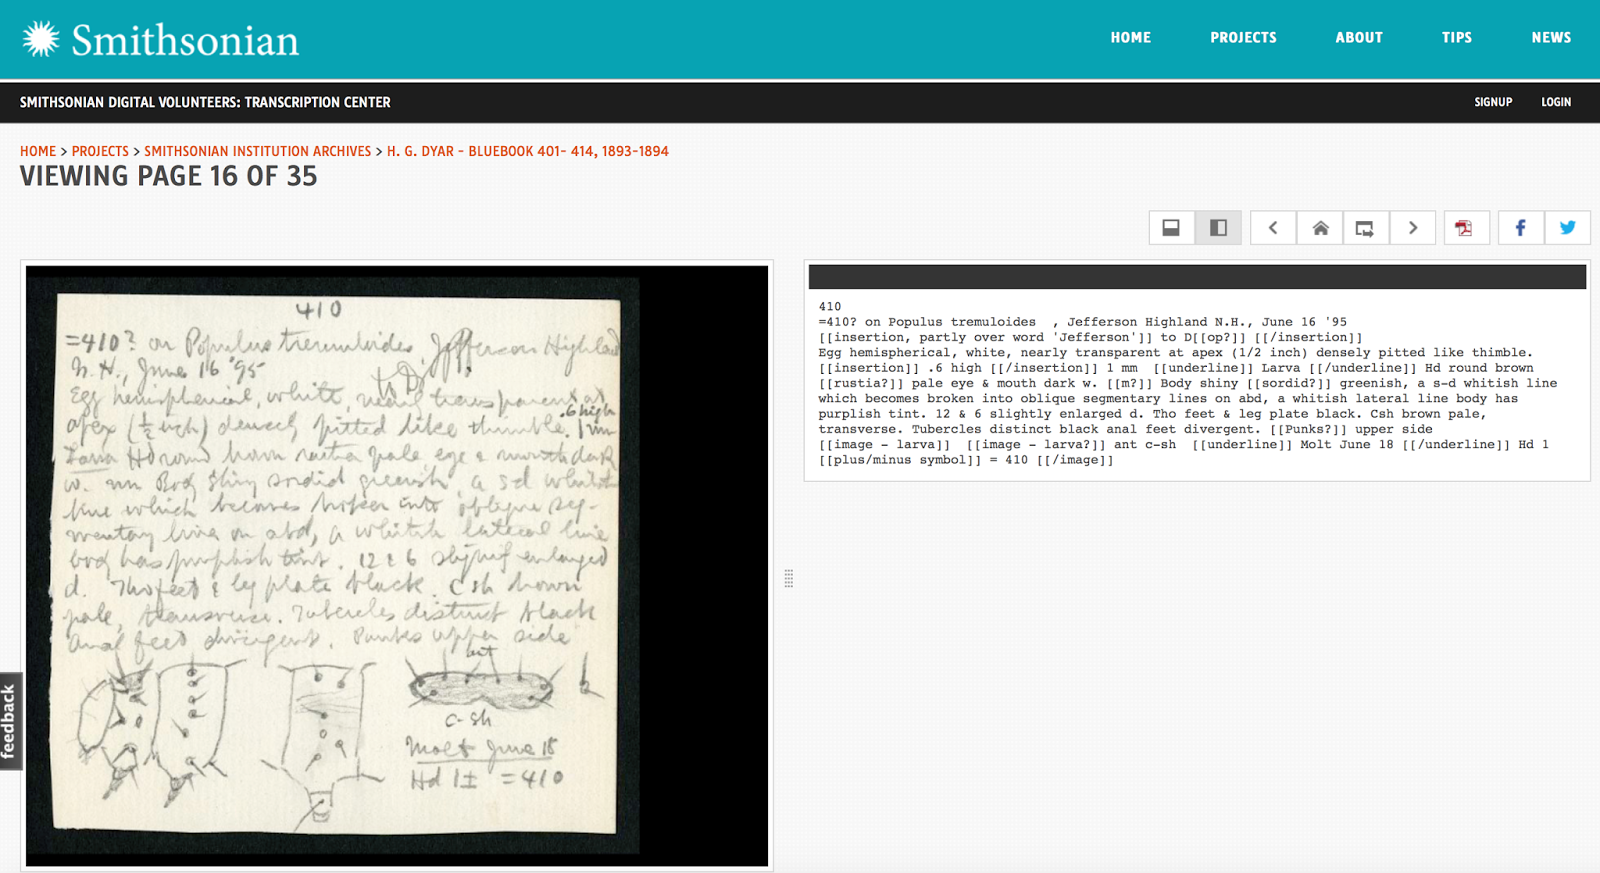 Smithsonian
HOME PROJECTS ABOUT TIPS NEWS
SMITHSONIAN DIGITAL VOLUNTEERS: TRANSCRIPTION CENTER
SIGNUP LOGIN
HOME > PROJECTS > SMITHSONIAN INSTITUTION ARCHIVES > H. G. DYAR - BLUEBOOK 401- 414, 1893-1894
VIEWING PAGE 16 OF 35
feedback
410
=410? on Populus tremuloides, Jefferson Highland
N.H., June 16 '95
to
Egg hemispherical, white, nearly transparent at
.6 high
apex (1/2 inch) densely pitted like thimble. 1 mm
Larva Hd round brown pale eye & mouth dark
w. Body shiny sordid greenish, a s-d whitish
line which becomes broken into oblique seg-
mentary lines on abd, a whitish lateral line
body has purplish tint. 12 & 6 slightly enlarged
d. Tho feet & leg plate black. C sh brown
pale, transverse. Tubercles distinct black
anal feet divergent. upper side
ant
c-sh
Molt June 18
Hd 1± =410
410
=410? on Populus tremuloides , Jefferson Highland N.H., June 16 '95
[[insertion, partly over word 'Jefferson']] to D[[op?]] [[/insertion]]
Egg hemispherical, white, nearly transparent at apex (1/2 inch) densely pitted like thimble.
[[insertion]] .6 high [[/insertion]] 1 mm [[underline]] Larva [[/underline]] Hd round brown
[[rustia?]] pale eye & mouth dark w. [[m?]] Body shiny [[sordid?]] greenish, a s-d whitish line
which becomes broken into oblique segmentary lines on abd, a whitish lateral line body has
purplish tint. 12 & 6 slightly enlarged d. Tho feet & leg plate black. Csh brown pale,
transverse. Tubercles distinct black anal feet divergent. [[Punks?]] upper side
[[image - larva]] [[image - larva?]] ant c-sh [[underline]] Molt June 18 [[/underline]] Hd 1
[[plus/minus symbol]] = 410 [[/image]]